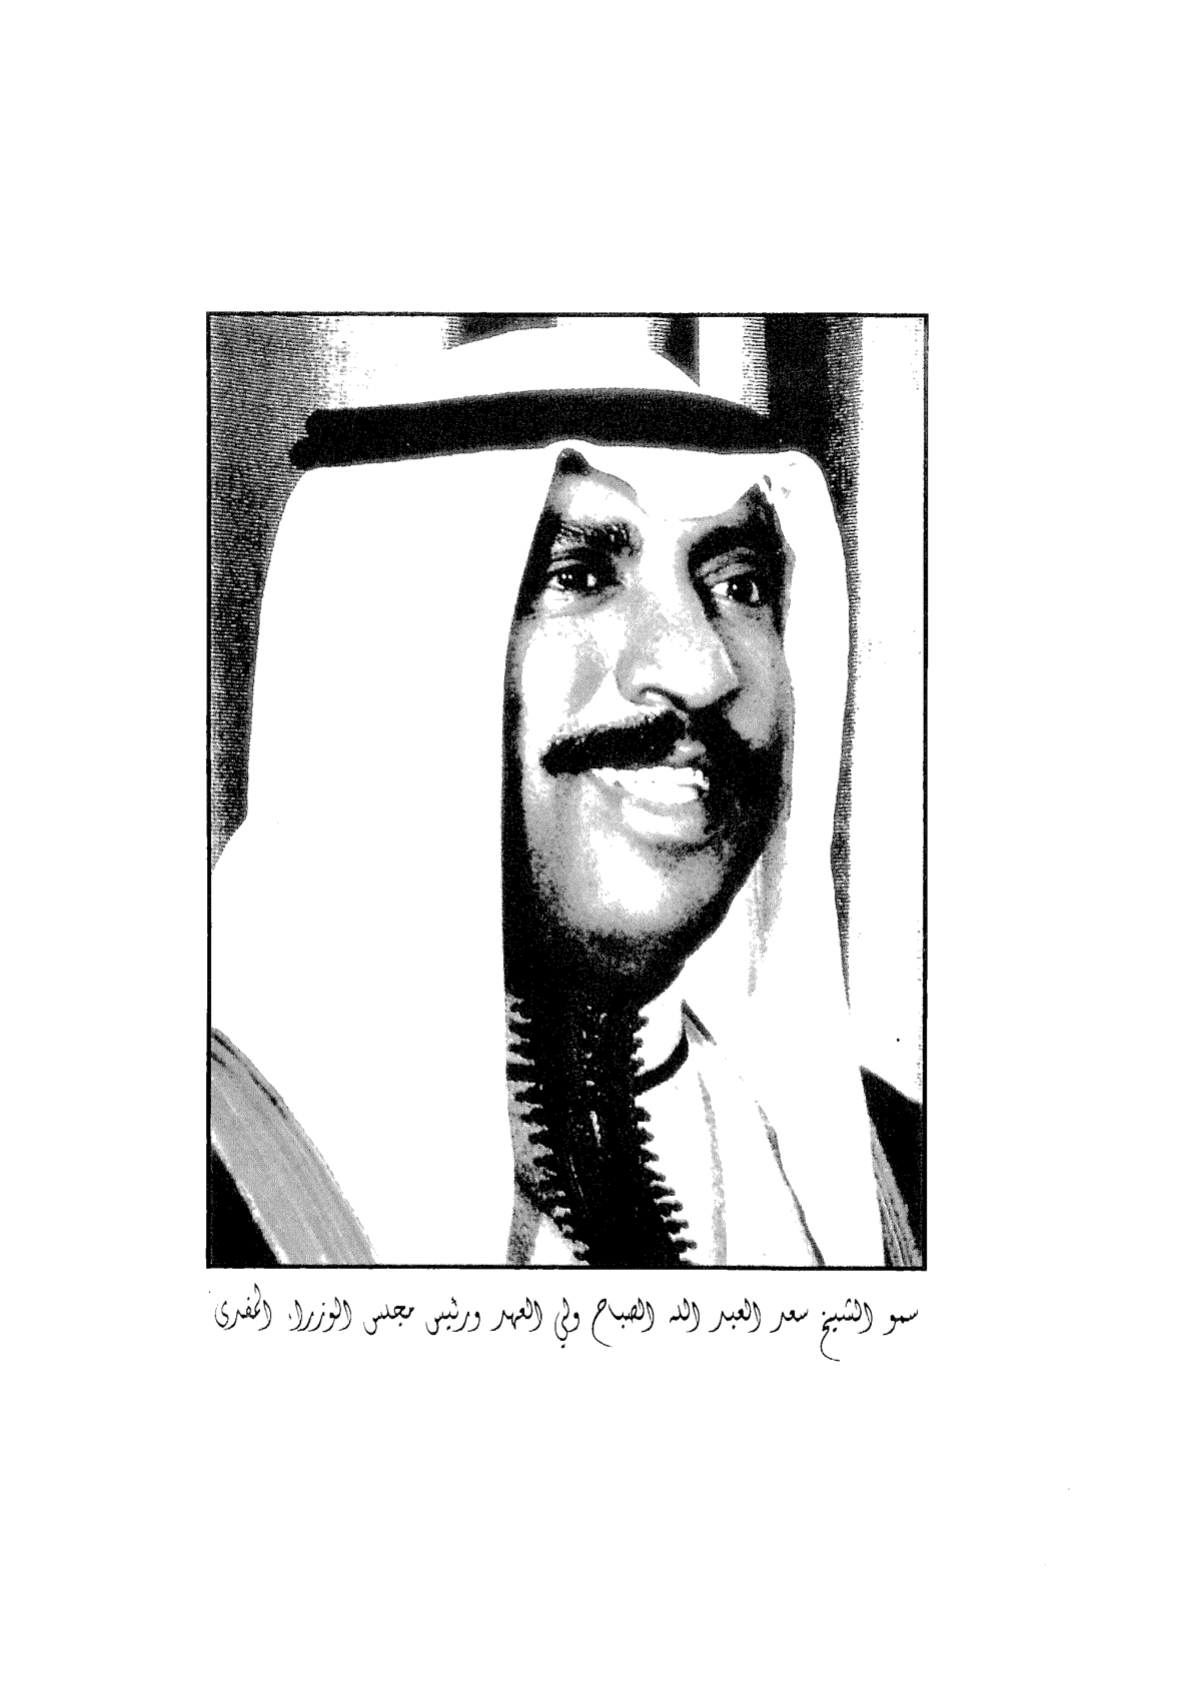 سمو الشيخ سعد العبد الله الصباح ولي العهد ورئيس مجلس الوزراء المفدى